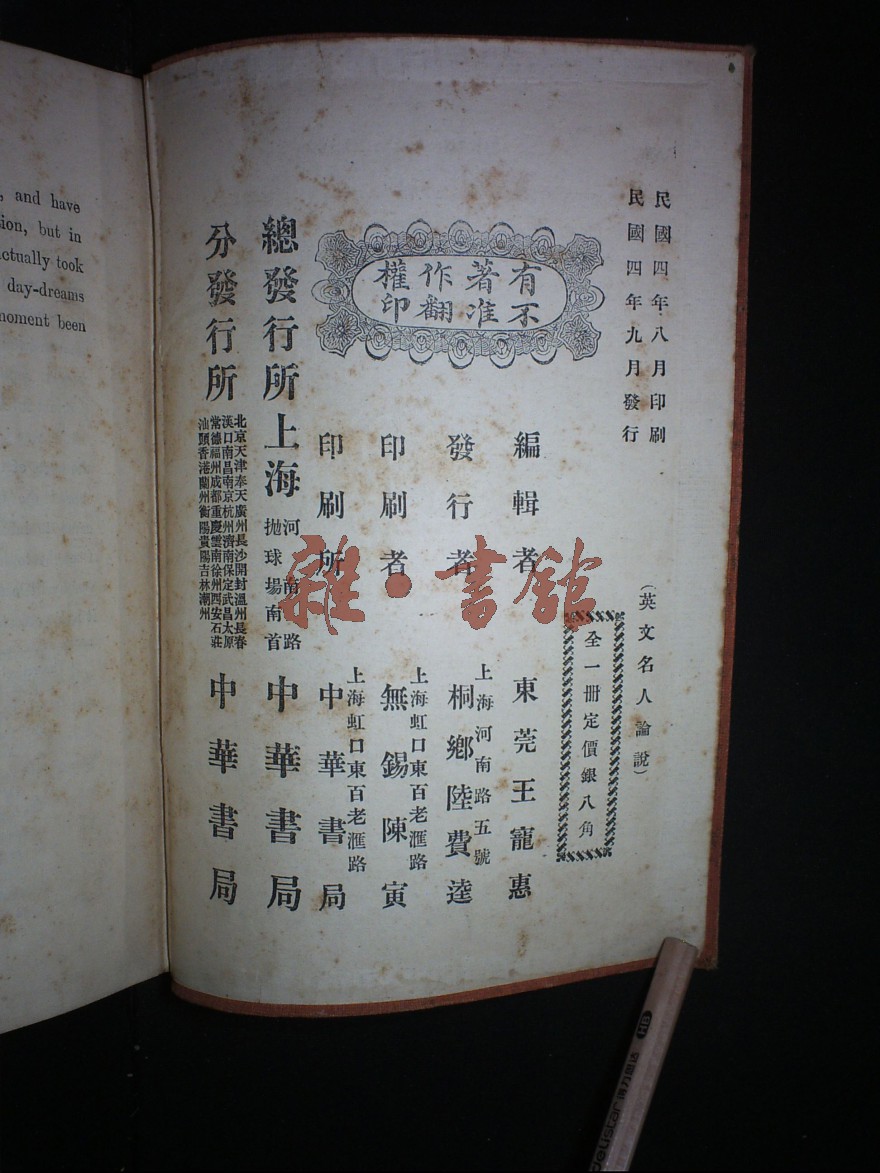 , and have
ion, but in
ctually took
day-dreams
moment been
民國四年八月印刷
民國四年九月發行
(英文名人論說)
全一冊定價銀八角
有著作權
不准翻印
編輯者 東莞王寵惠
發行者 上海河南路五號 桐鄉陸費逵
印刷者 上海虹口東百老滙路 無錫陳寅
印刷所 上海虹口東百老滙路 中華書局
總發行所 上海 河南路拋球場南首 中華書局
分發行所
北京天津奉天廣州長沙開封溫州長春
漢口南昌南京杭州濟南保定武昌太原
常德福州成都重慶雲南徐州西安石莊
汕頭香港蘭州衡陽貴陽吉林潮州
中華書局
雜·書館
HB